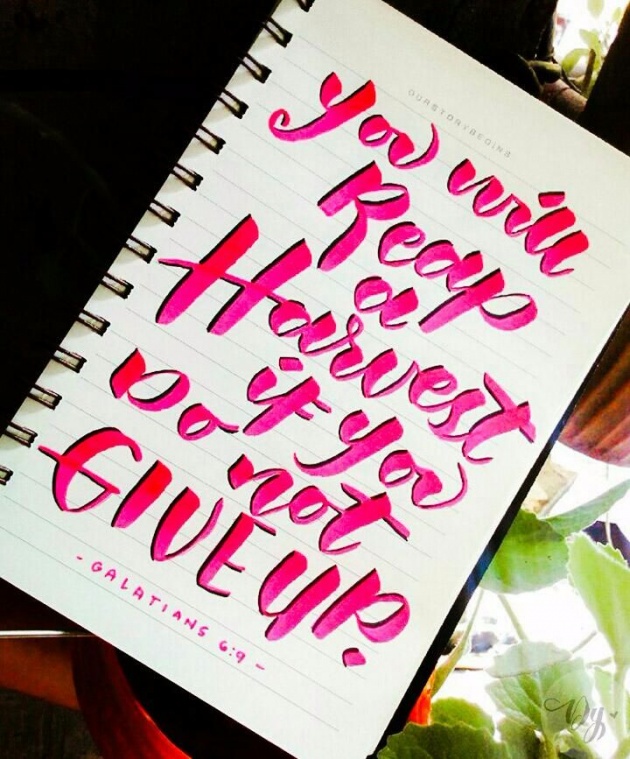 OURSTORYBEGINS
you will
Reap
a
Harvest
if you
Do not
GIVE UP.
- GALATIANS 6:9 -